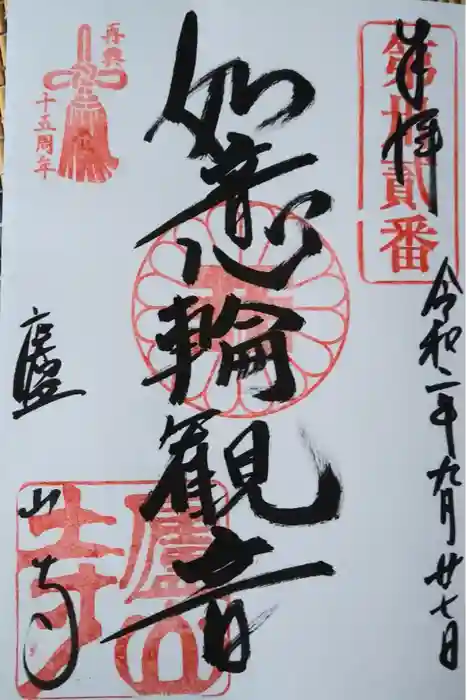 奉拝
第卅貳番
令和二年九月廿七日
如意輪観音
再興
十五周年
廬山寺
廬山寺